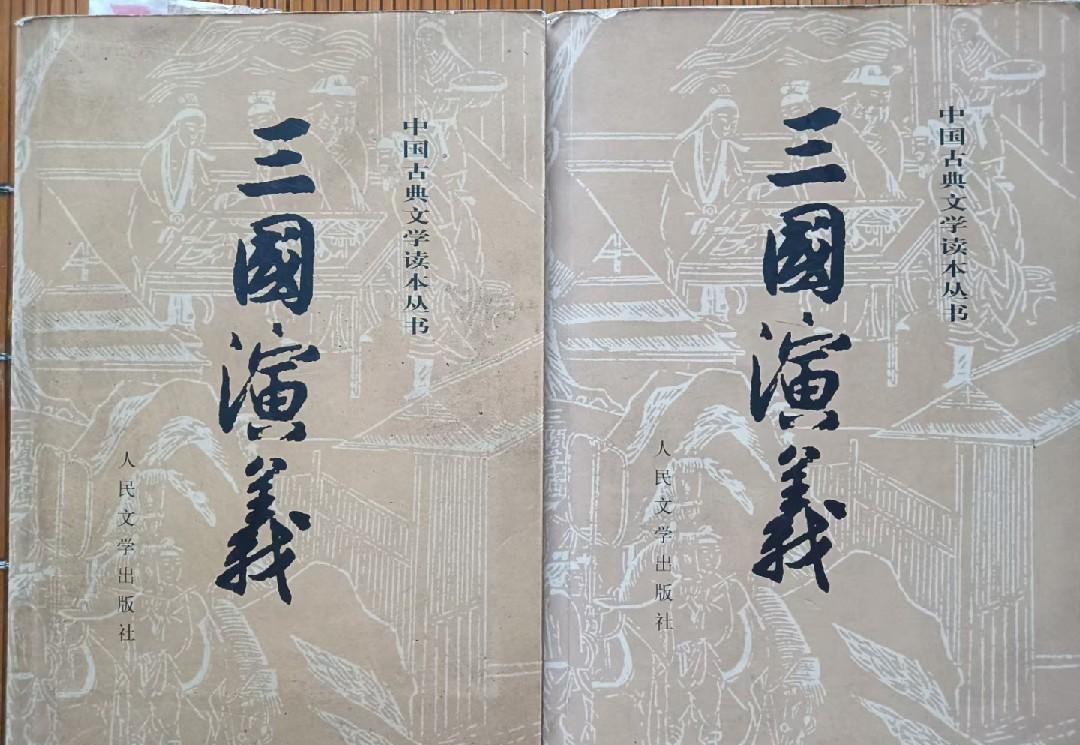 三國演義
中国古典文学读本丛书
人民文学出版社
三國演義
中国古典文学读本丛书
人民文学出版社